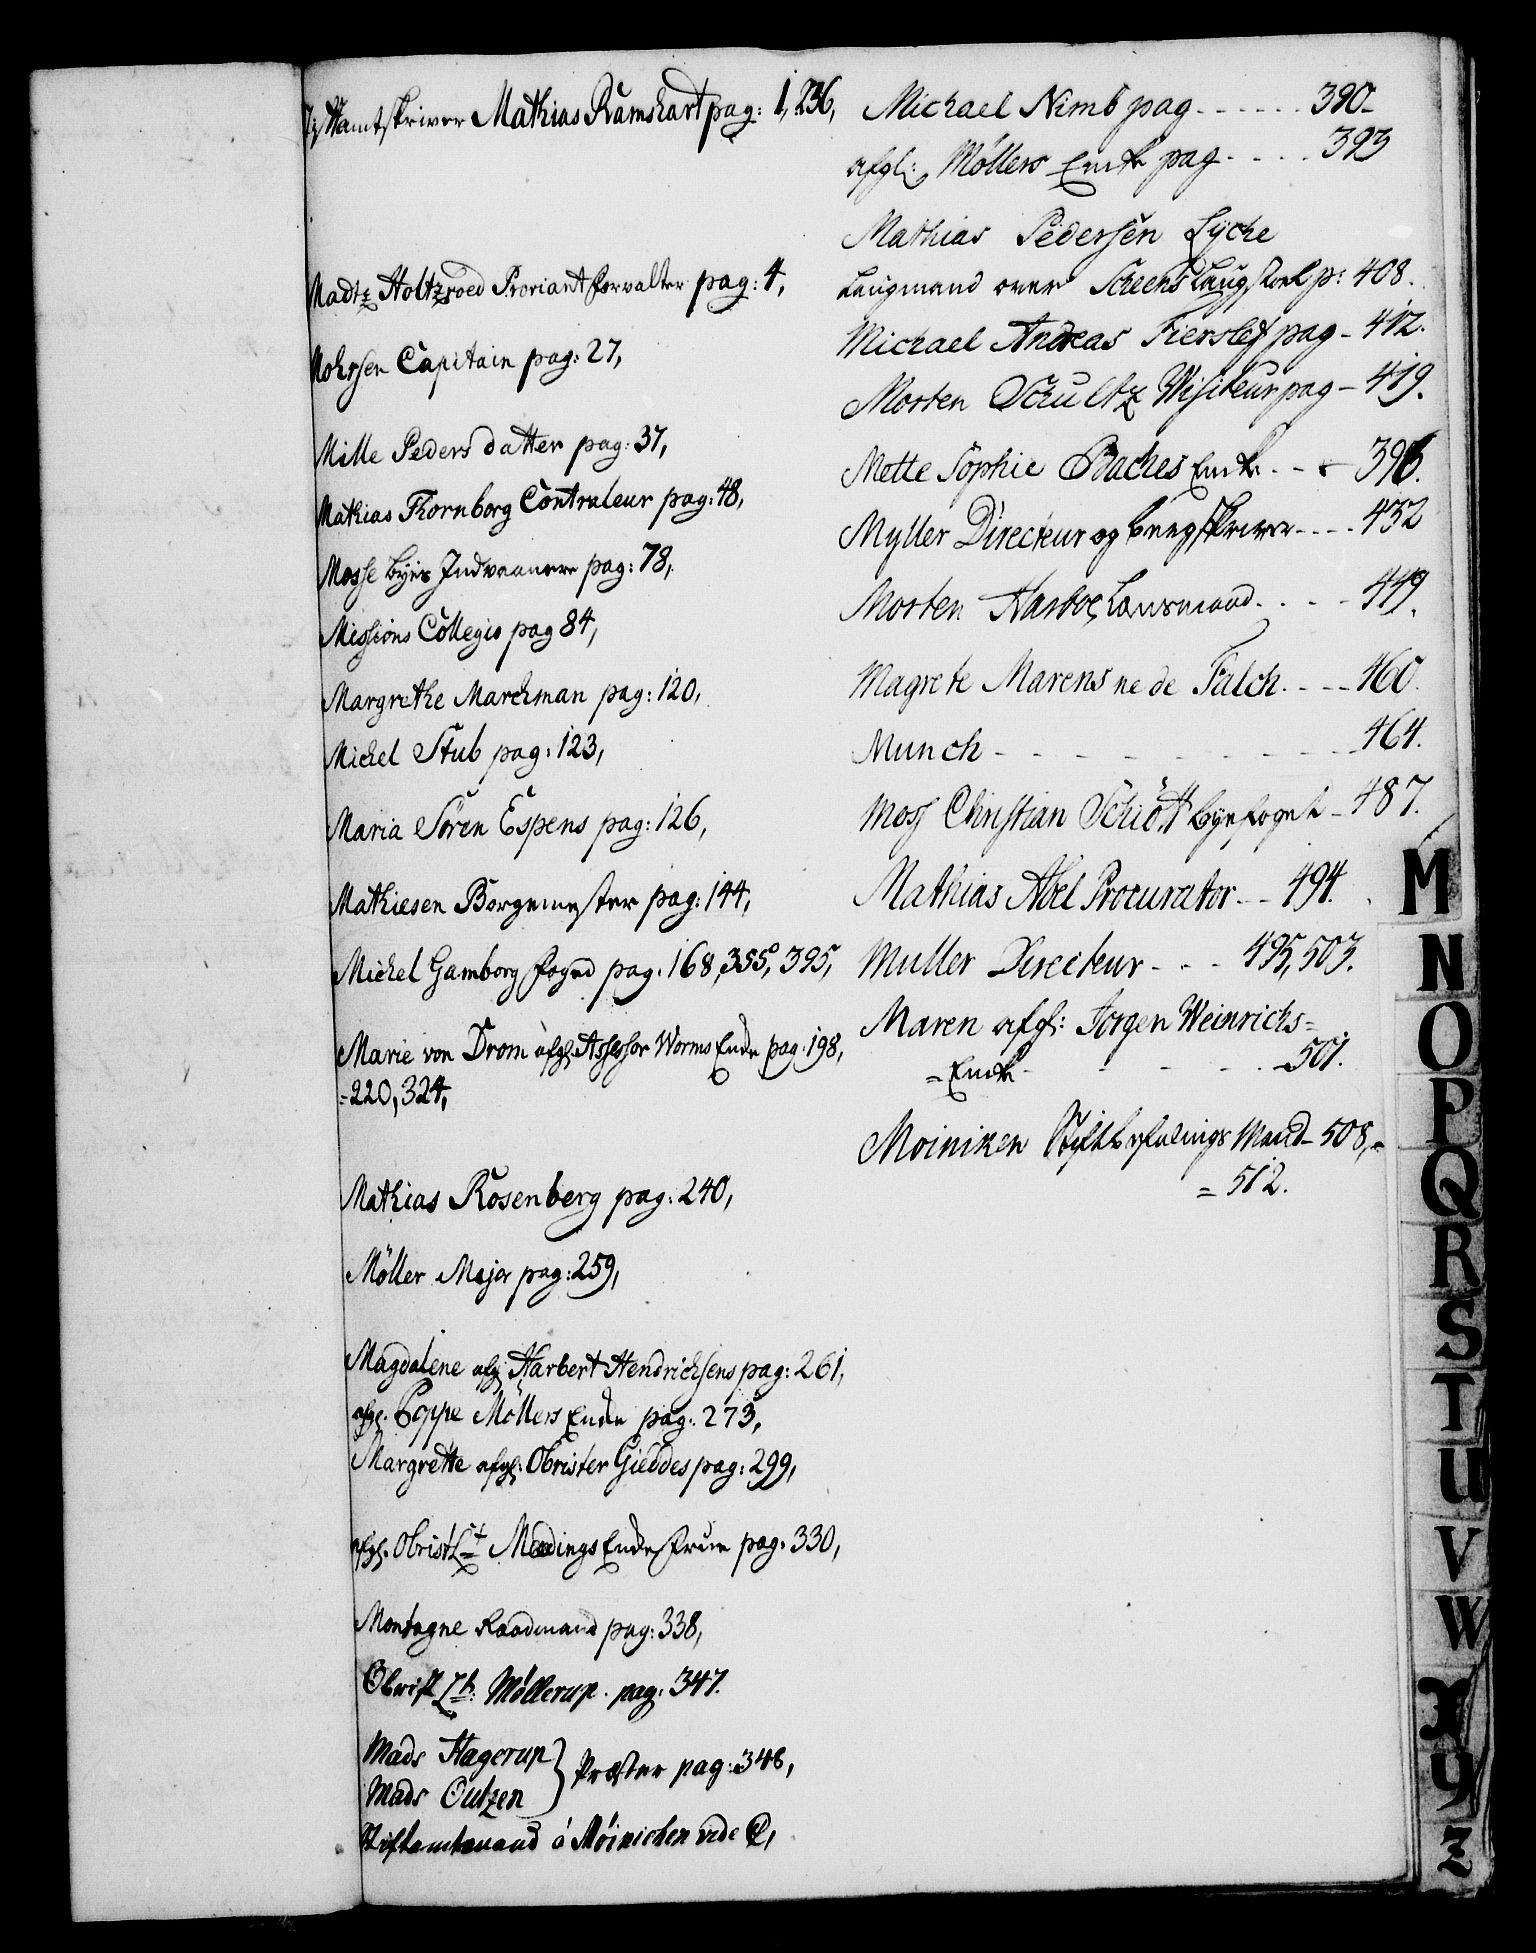 Stiftamtskriver Mathias Ramshart pag: 1, 236,
Madtz Holtzroed Proviantforvalter pag: 4,
Mohrsen Capitain pag: 27,
Mille Peders datter pag: 37,
Mathias Thornborg Contraleur pag: 48,
Mosse Byes Indvaanere pag: 78,
Missions Collegio pag 84,
Margrethe Marchman pag: 120,
Michel Stub pag: 123,
Maria Sören Espens pag: 126,
Mathiesen Borgemester pag: 144,
Michel Gamborg foged pag: 168, 355, 395,
Marie von Drom afgl: Assessor Worms Enke pag: 198,
=220, 324,
Mathias Rosenberg pag: 240,
Möller Major pag: 259,
Magdalene afg: Harbert Hendrichsens pag: 261,
afgl: Poppe Möllers Enke pag: 273,
Margrette afgl: Obrister Gieddes pag: 299,
afgl: Obrist Lt Mødings Enkefrue pag: 330,
Montagne Raadmand pag: 338,
Obrist Lt: Möllerup pag: 347.
Mads Hagerup
Mads Outzen } Præster pag: 348,
Stiftamtmand á Möinichen vide C,
Michael Nimb pag - - - - - - 390
afgl: Möllers Enke pag - - - - 393
Mathias Pedersen Lyche
Laugmand over Scheens Laugstoel p: 408.
Michael Andreas Fiersleff pag - 412.
Morten Schultz Visiteur pag - 419.
Mette Sophie Baches Enke - - - 396.
Myller Directeur og bergskriver - - - - 432
Morten Harboe Lansmand - - - - 449.
Magrete Marens ne de Falch - - - - 460.
Munch - - - - - - - - - 464.
Moss Christian Schiött byefoget - 487.
Mathias Abel Procurator - - - 494.
Muller Directeur - - - 495, 503.
Maren afgl: Jorgen Weinrichs=
=Enke - - - - - - 501.
Moinixen Stiftbefalings Mand - 508,=
= 512.
M
N
O
P
Q
R
S
T
U
V
W
X
Y
Z